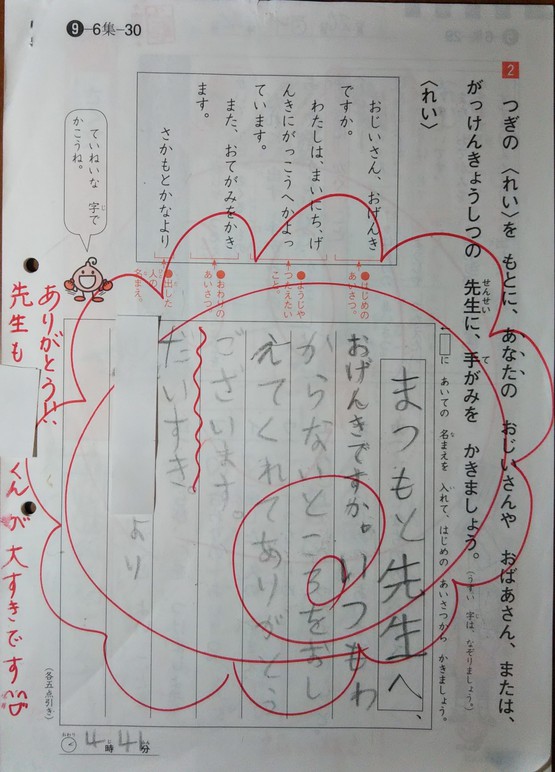 ❾-6集-30
2
つぎの 〈れい〉を もとに、あなたの おじいさんや おばあさん、または、
がっけんきょうしつの 先生に、手がみを かきましょう。
せんせい
て
(うすい 字は、なぞりましょう。)
〈れい〉
おじいさん、おげんき
ですか。
わたしは、まいにち、げ
んきにがっこうへかよっ
ています。
また、おてがみをかき
ます。
さかもとかなより
●はじめの
あいさつ。
●ようじや
つたえたい
こと。
●おわりの
あいさつ。
●出した
人の
名まえ。
ていねいな 字で
かこうね。
□に あいての 名まえを 入れて、はじめの あいさつから かきましょう。
まつもと先生へ、
おげんきですか。いつもわ
からないところをおし
えてくれてありがとう
ございます。
だいすき
より
ありがとう!!
先生も
くんが大すきです
(各五点引き)
おわり
4時41分